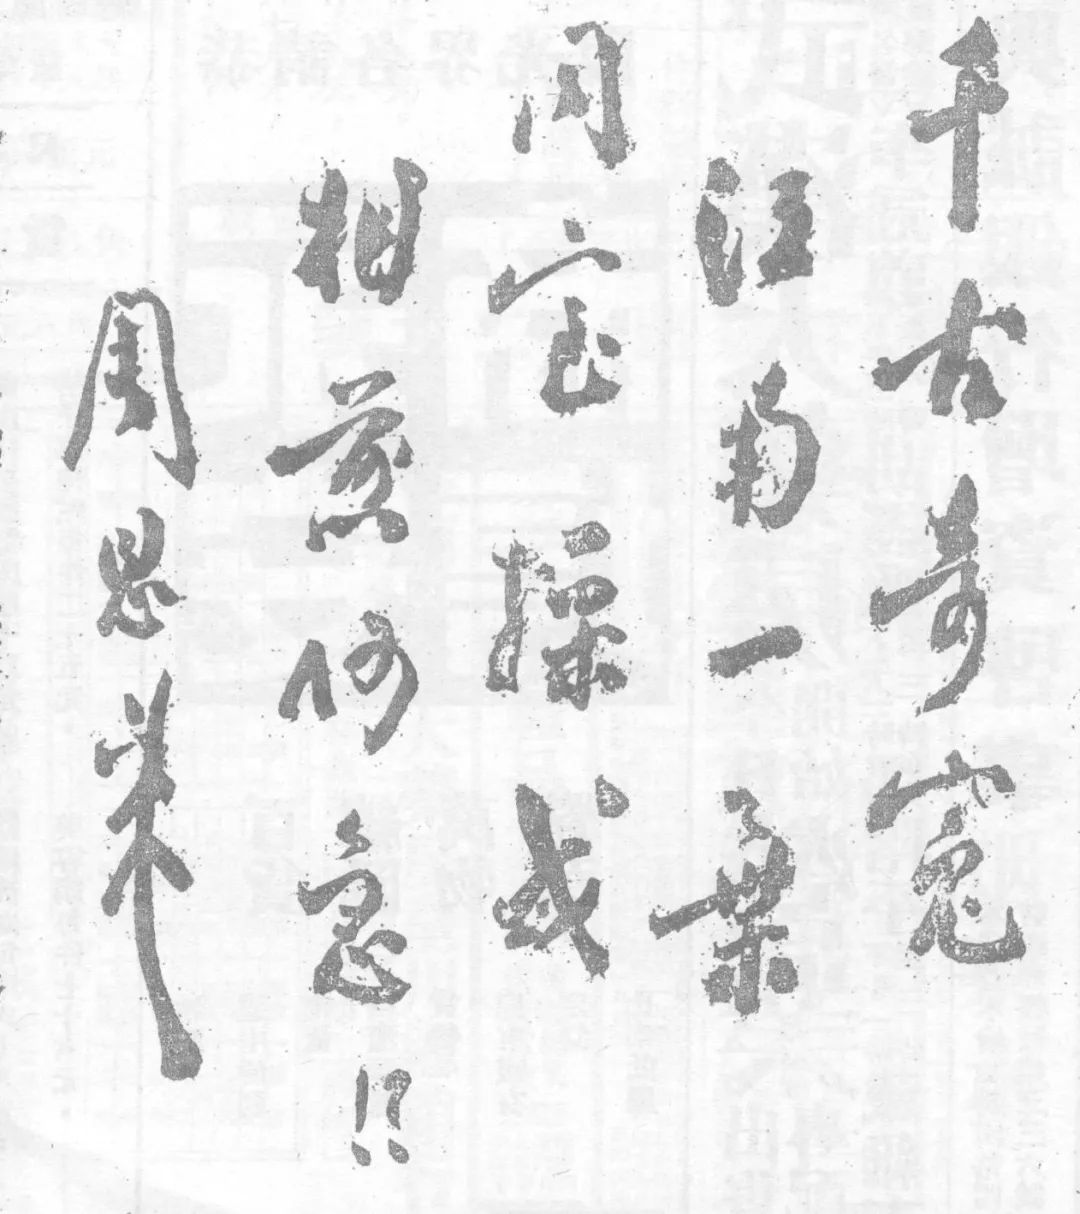 千古奇寃
江南一葉
同室操戈
相煎何急！！
周恩来